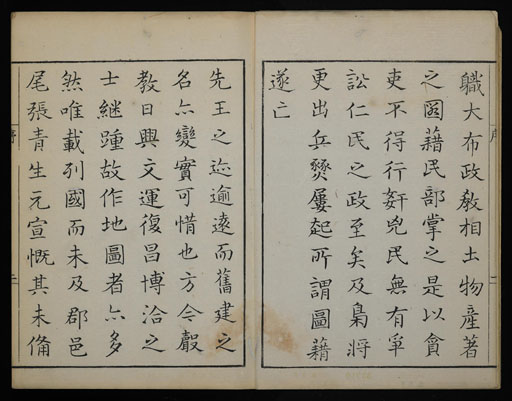 職大布政敎相土物產著
之圖藉民部掌之是以貪
吏不得行姧兇民無有爭
訟仁民之政至矣及梟將
更出兵燹屢起所謂圖藉
遂亡
先王之迹逾遠而舊建之
名亦變實可惜也方今聲
敎日興文運復昌博洽之
士継踵故作地圖者亦多
然唯載列國而未及郡邑
尾張青生元宣慨其未備
序
二
序